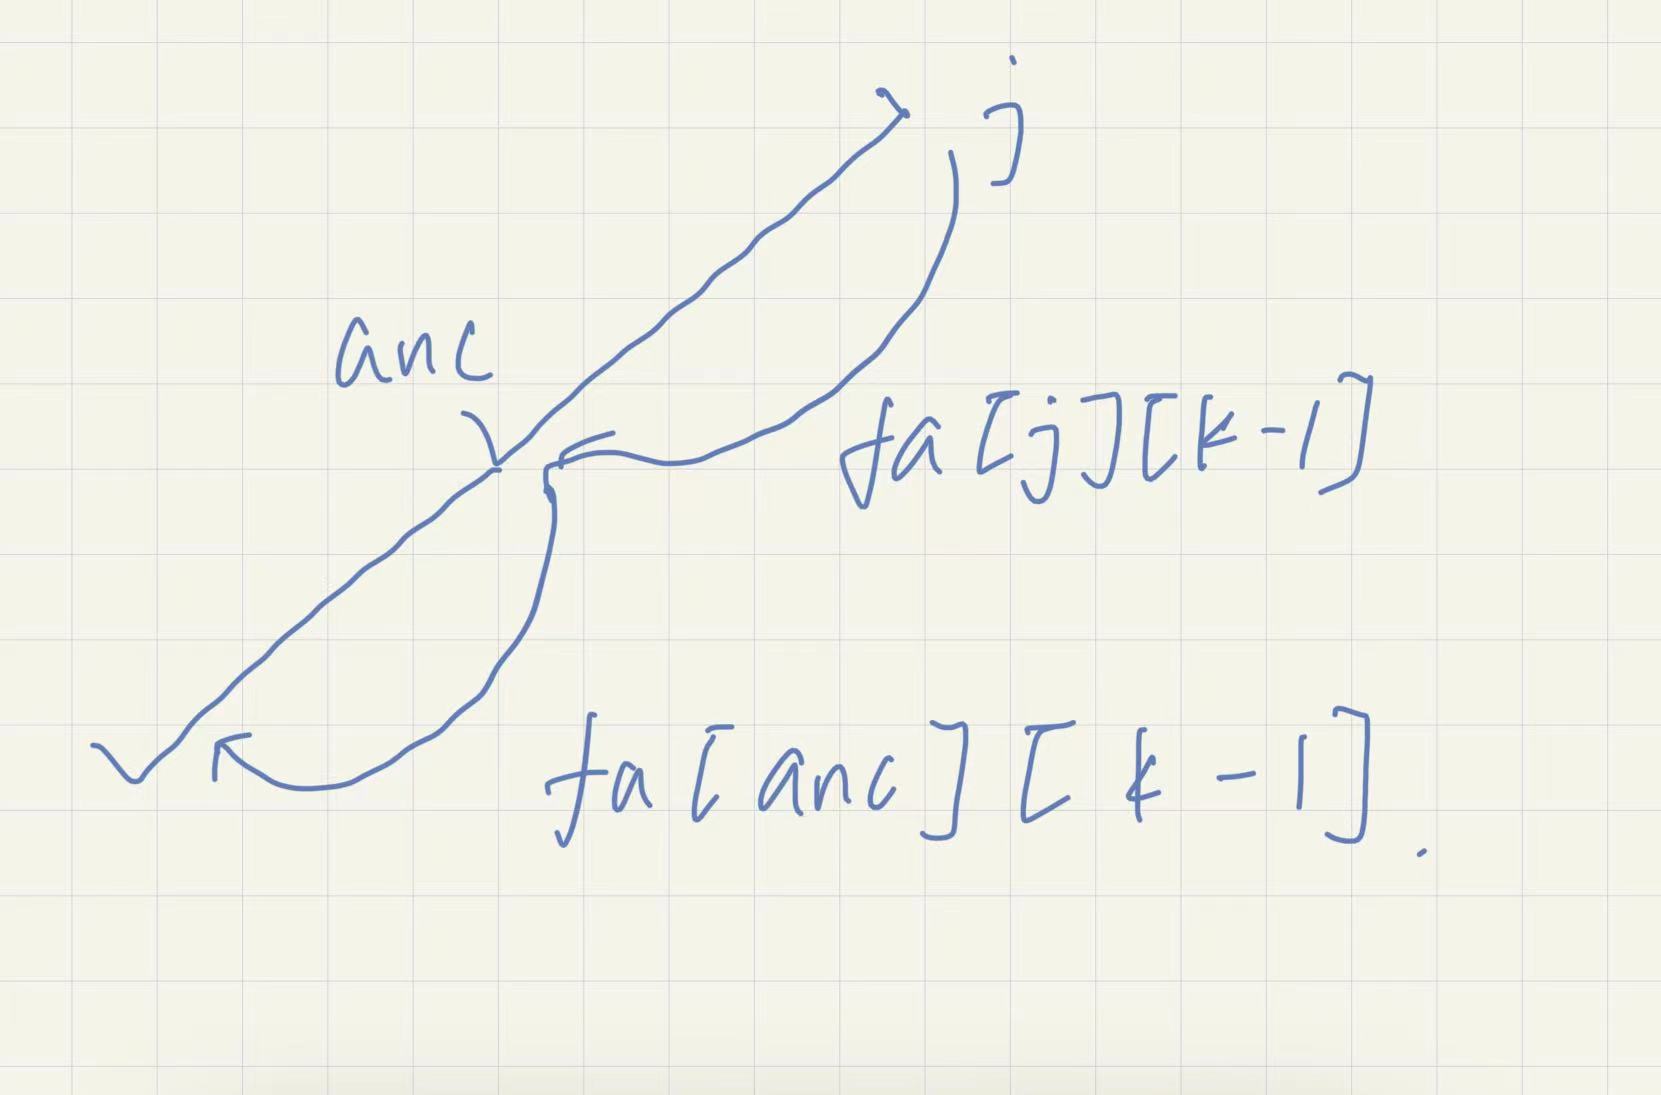 j
anc
fa[j][k-1]
fa[anc][k-1].